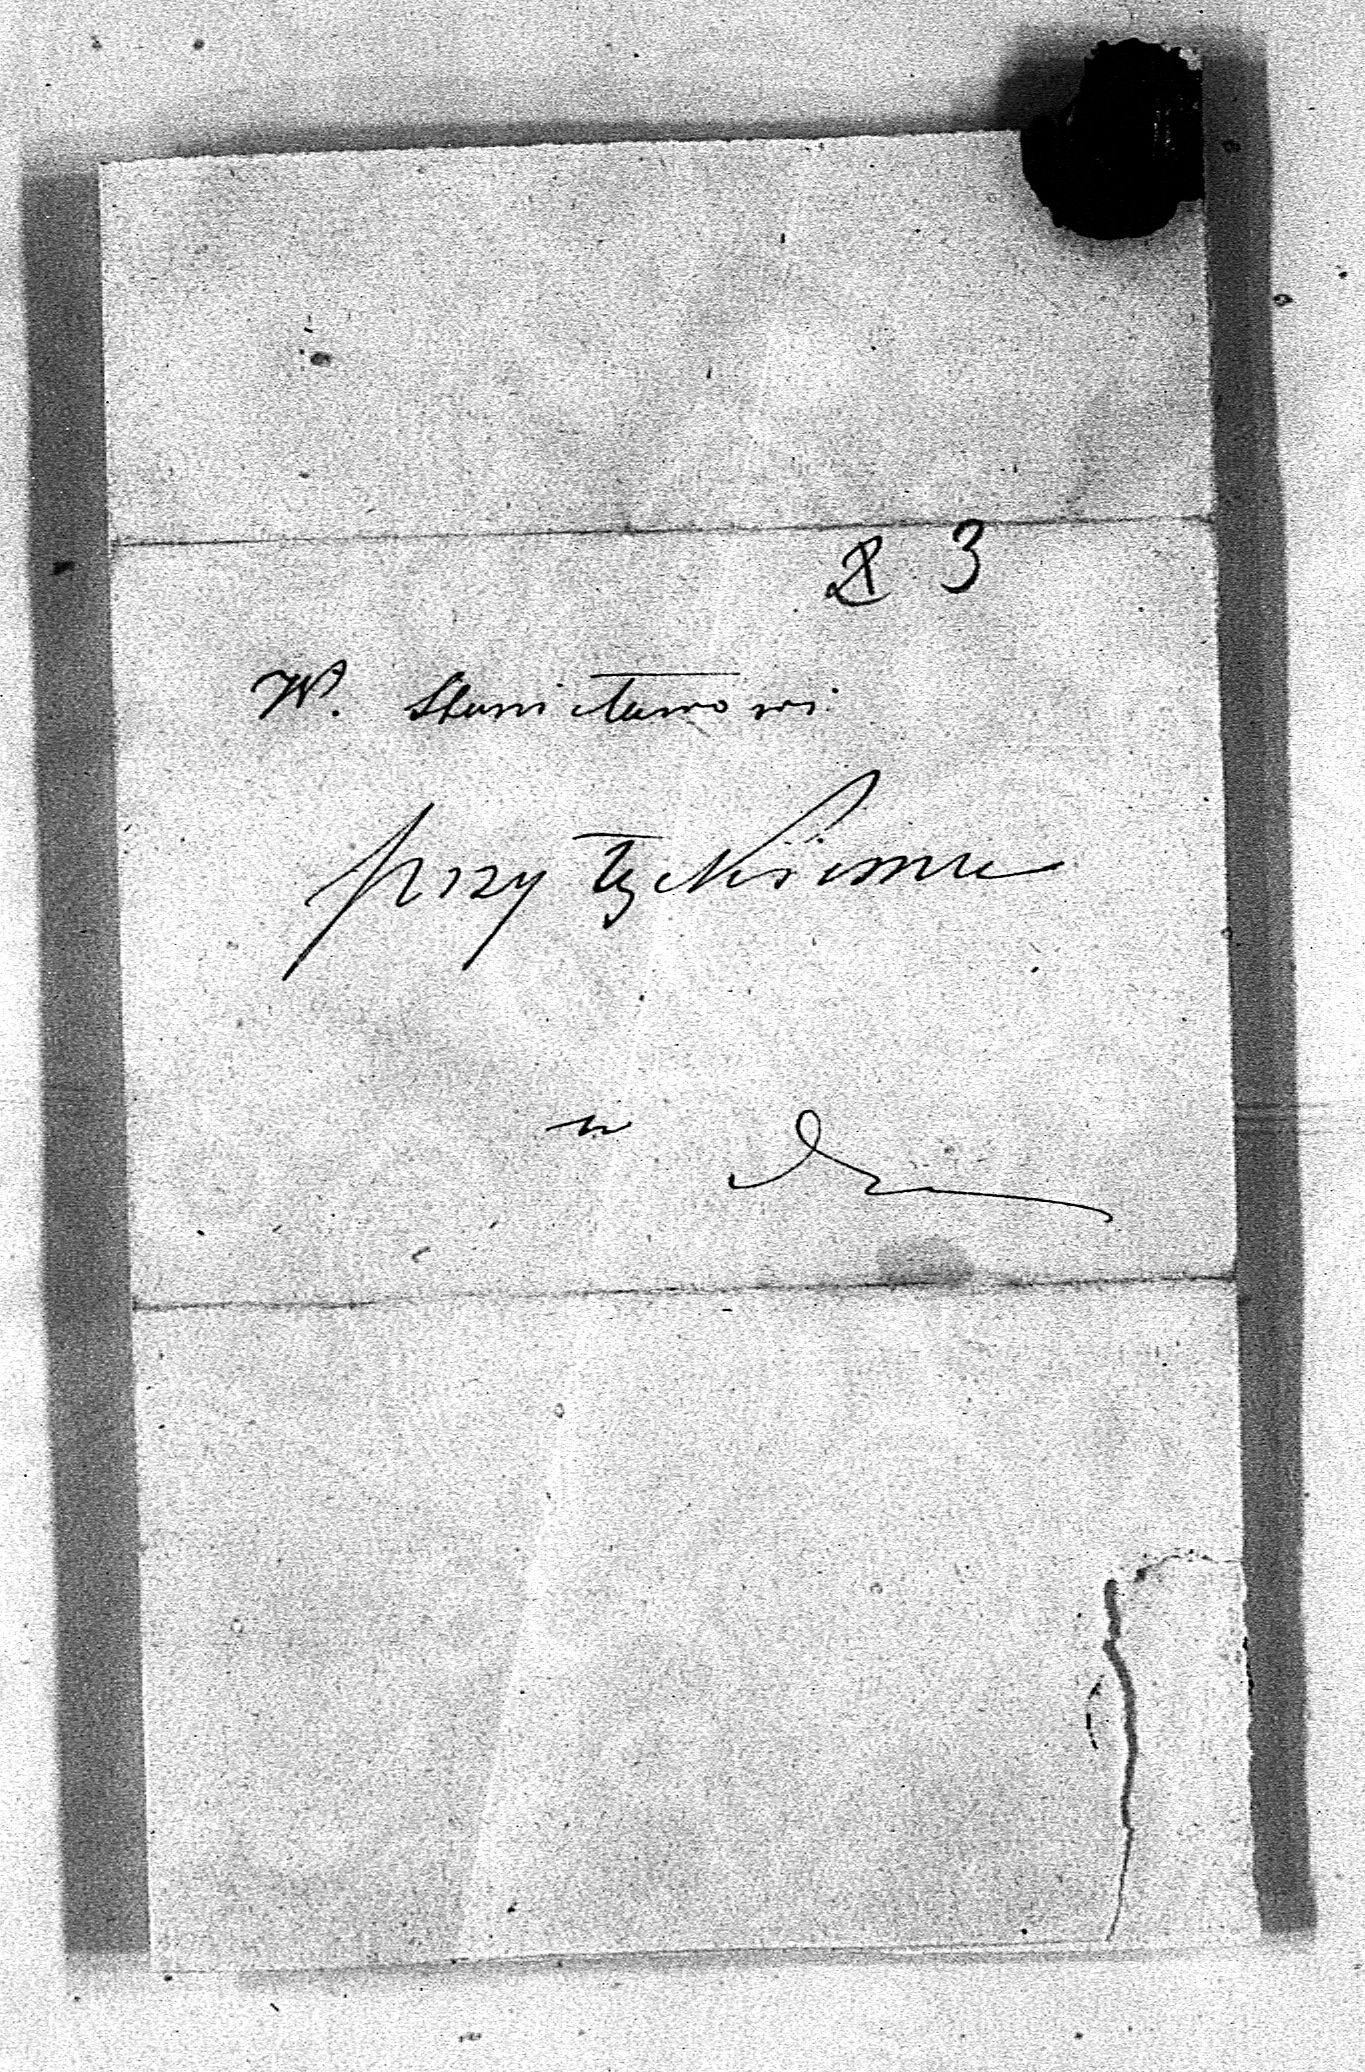 3
W. Stanisławowi
Przyłęckiemu
w